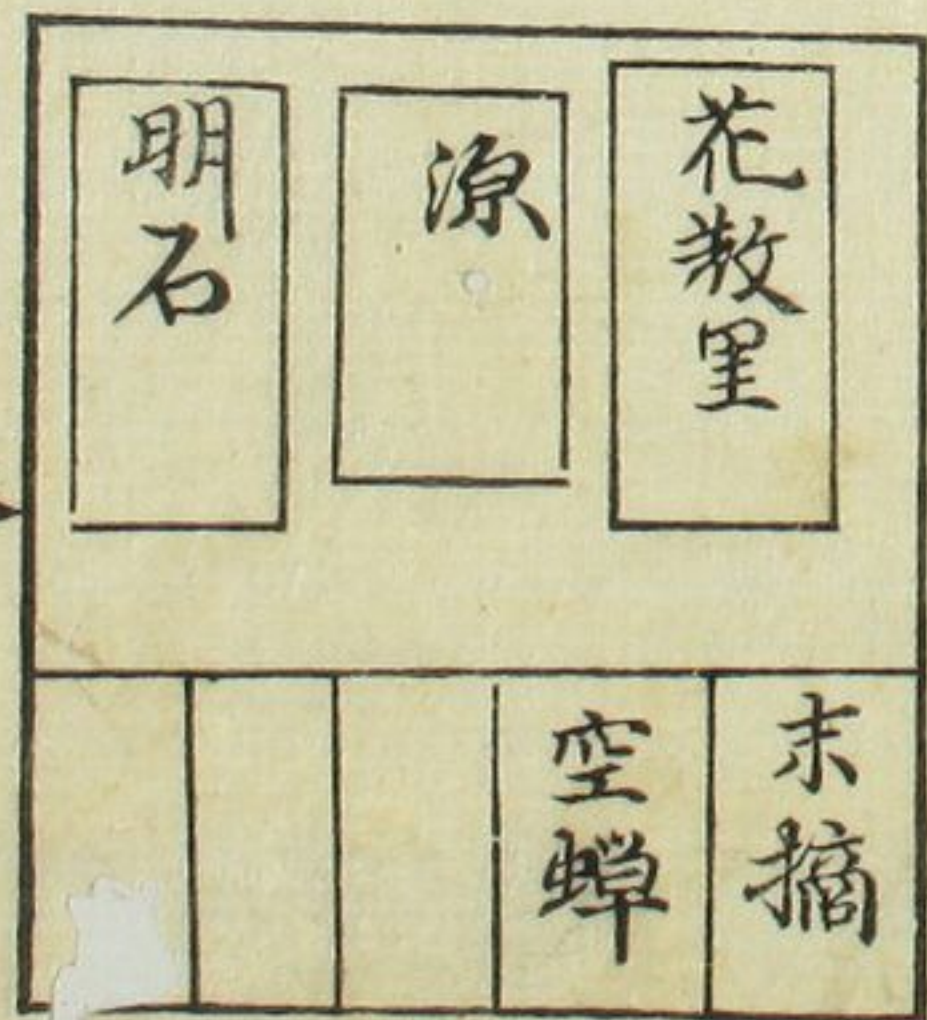 花散里
源
明石
末摘
空蝉